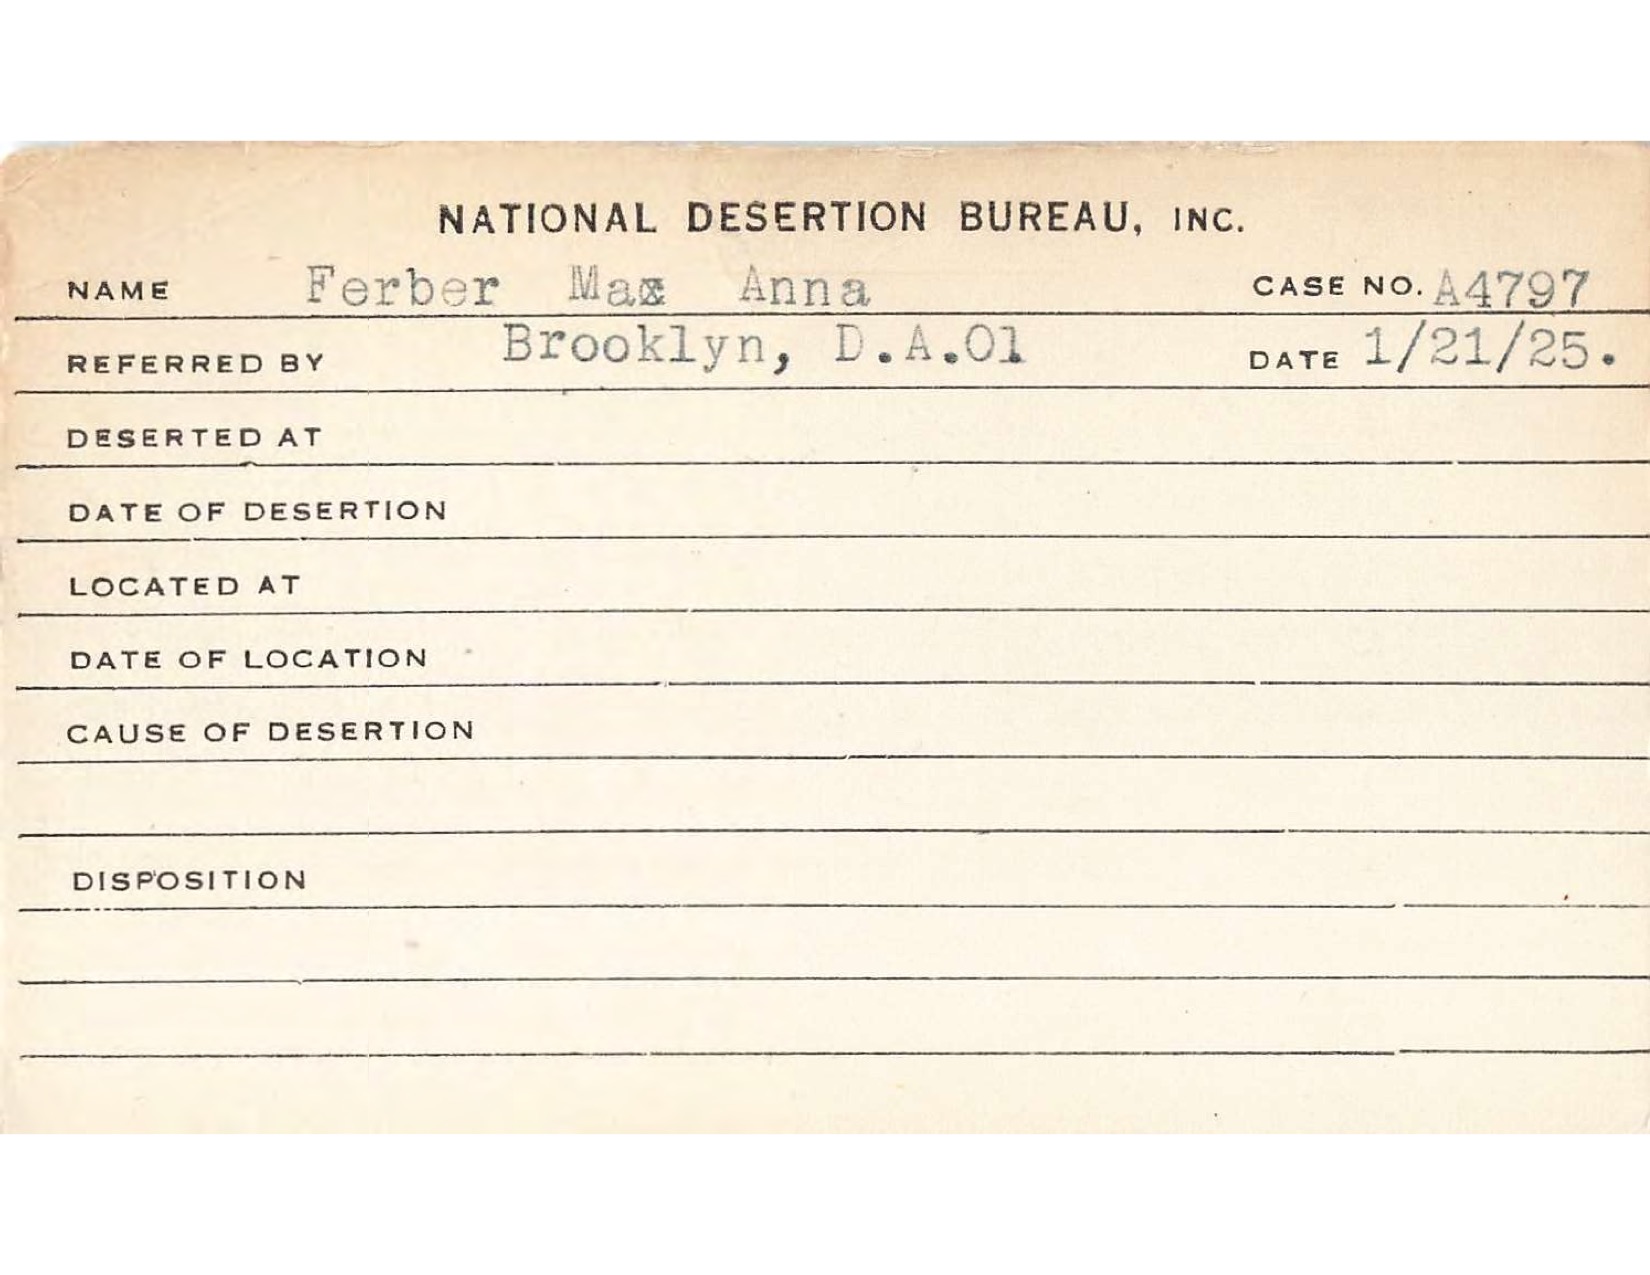 NATIONAL DESERTION BUREAU, INC.
NAME Ferber Max Anna CASE NO. A4797
REFERRED BY Brooklyn, D.A.Ol DATE 1/21/25.
DESERTED AT
DATE OF DESERTION
LOCATED AT
DATE OF LOCATION
CAUSE OF DESERTION
DISPOSITION